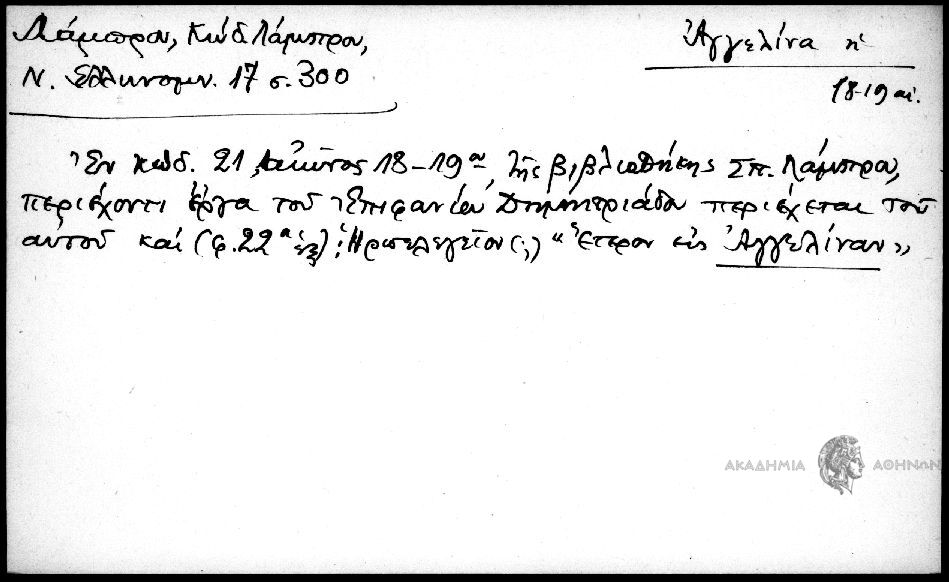 Λάμπρου, Κώδ. Λάμπρου,
Ν. Ἑλληνομν. 17 σ. 300
Ἀγγελίνα ἡ
18-19 αἰ.
Ἐν κώδ. 21, αἰῶνος 18-19ου, τῆς βιβλιοθήκης Σπ. Λάμπρου,
περιέχοντι ἔργα τοῦ Ἐπιφανίου Δημητριάδου περιέχεται τοῦ
αὐτοῦ καί (φ. 22α ἑξ) : Ἡρωελεγεῖον (;) “Ἕτερον εἰς Ἀγγελίναν”
ΑΚΑΔΗΜΙΑ ΑΘΗΝΩΝ